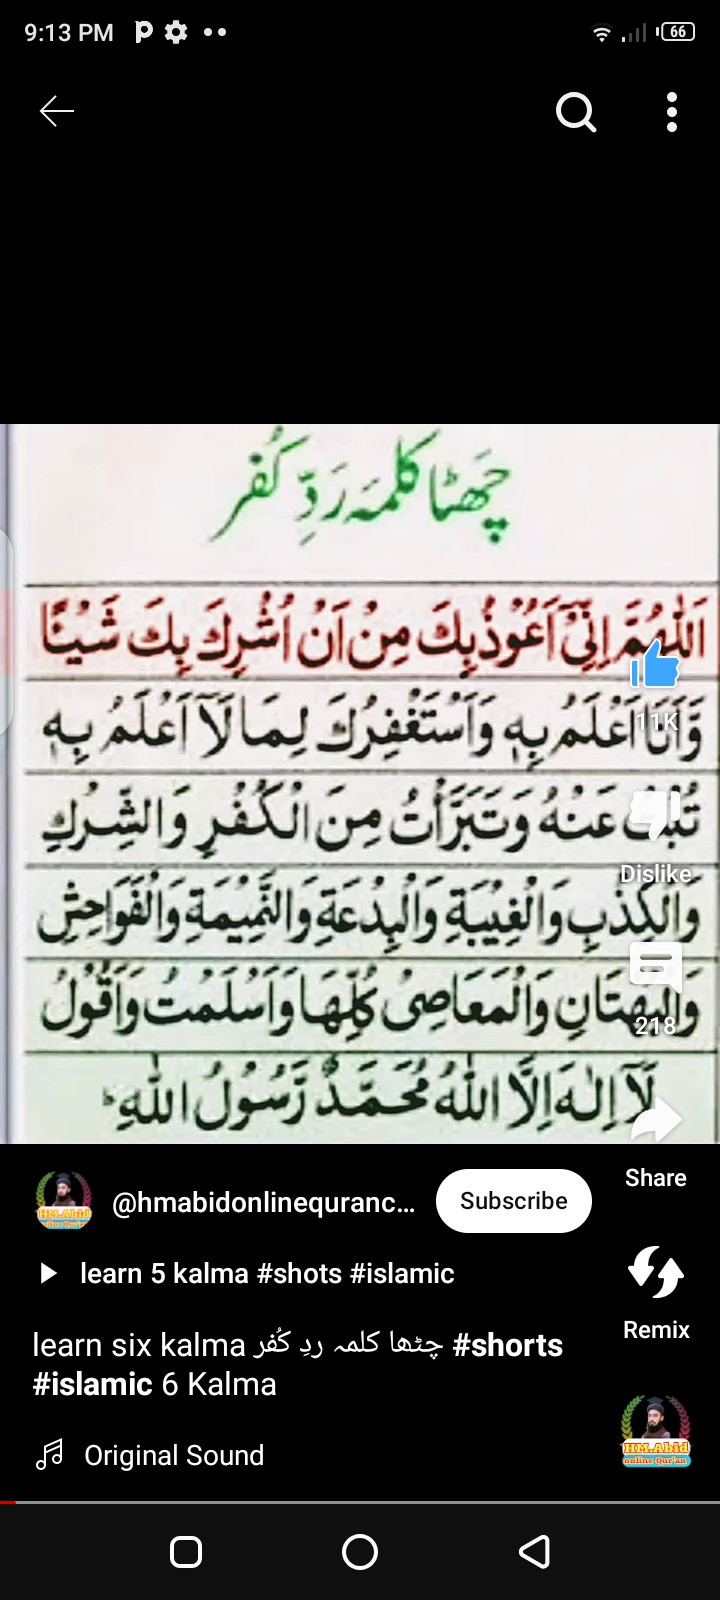 9:13 PM
66
چھٹا کلمہ رَدِّ کُفر
اَللّٰهُمَّ اِنِّیْۤ اَعُوْذُ بِكَ مِنْ اَنْ اُشْرِكَ بِكَ شَیْـًٔا
وَّاَنَا اَعْلَمُ بِهٖ وَاَسْتَغْفِرُكَ لِمَا لَاۤ اَعْلَمُ بِهٖ
تُبْتُ عَنْهُ وَتَبَرَّأْتُ مِنَ الْكُفْرِ وَالشِّرْكِ
وَالْكِذْبِ وَالْغِیْبَةِ وَالْبِدْعَةِ وَالنَّمِیْمَةِ وَالْفَوَاحِشِ
وَالْبُهْتَانِ وَالْمَعَاصِیْ كُلِّهَا وَاَسْلَمْتُ وَاَقُوْلُ
لَاۤ اِلٰهَ اِلَّا اللّٰهُ مُحَمَّدٌ رَّسُوْلُ اللّٰهِ
11K
Dislike
218
Share
@hmabidonlinequranc...
Subscribe
learn 5 kalma #shots #islamic
Remix
learn six kalma چٹھا کلمہ ردِ کُفر #shorts
#islamic 6 Kalma
HM.Abid
online Qur'an
Original Sound